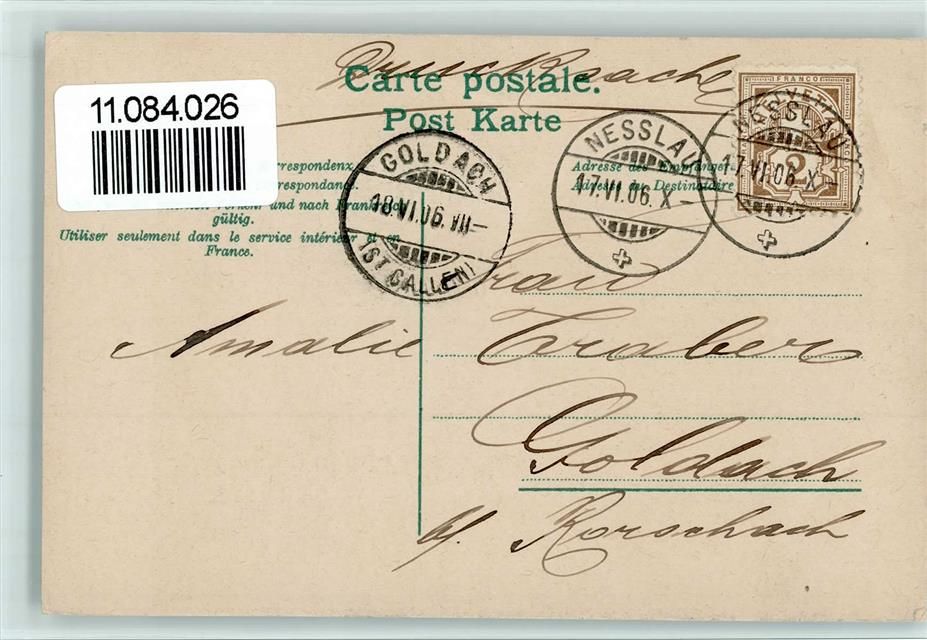 Drucksache
Carte postale.
Post Karte
11.084.026
FRANCO
NESSLAU
17.VI.06.X-
NESSLAU
17.VI.06.X-
GOLDACH
18.VI.06.VII-
(ST. GALLEN)
Adresse des Empfängers
Adresse du Destinataire
rrespondenz
respondance
und nach Frankreich
gültig.
Utiliser seulement dans le service intérieur et en
France.
Frau
Amalie Traber
Goldach
b/. Rorschach